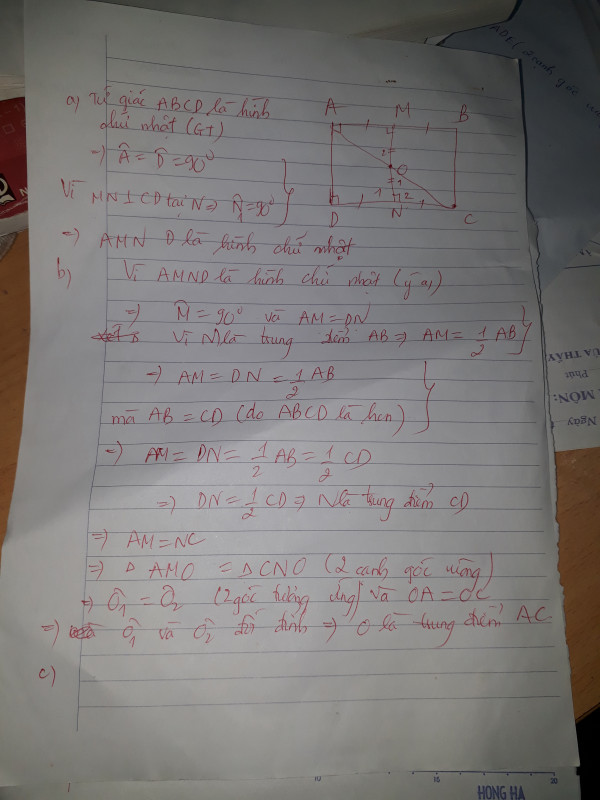 a) Tứ giác ABCD là hình
chữ nhật (GT)
=> Â = D̂ = 90°
Vì MN ⊥ CD tại N => N̂₁ = 90°
=> AMND là hình chữ nhật
A M B
O
1
1 2
D N C
b) Vì AMND là hình chữ nhật (ý a)
=> M̂ = 90° và AM = DN
Vì N là trung điểm AB => AM = 1/2 AB
=> AM = DN = 1/2 AB
mà AB = CD (do ABCD là hcn)
=> AM = DN = 1/2 AB = 1/2 CD
=> DN = 1/2 CD => N là trung điểm CD
=> AM = NC
=> Δ AMO = Δ CNO (2 canh góc vuông)
=> Ô₁ = Ô₂ (2 góc tương ứng) và OA = OC
=> Ô₁ và Ô₂ đối đỉnh => O là trung điểm AC
c)
UA THẦY
Phút
MÔN:
Ngày
10 15 20
HONG HA